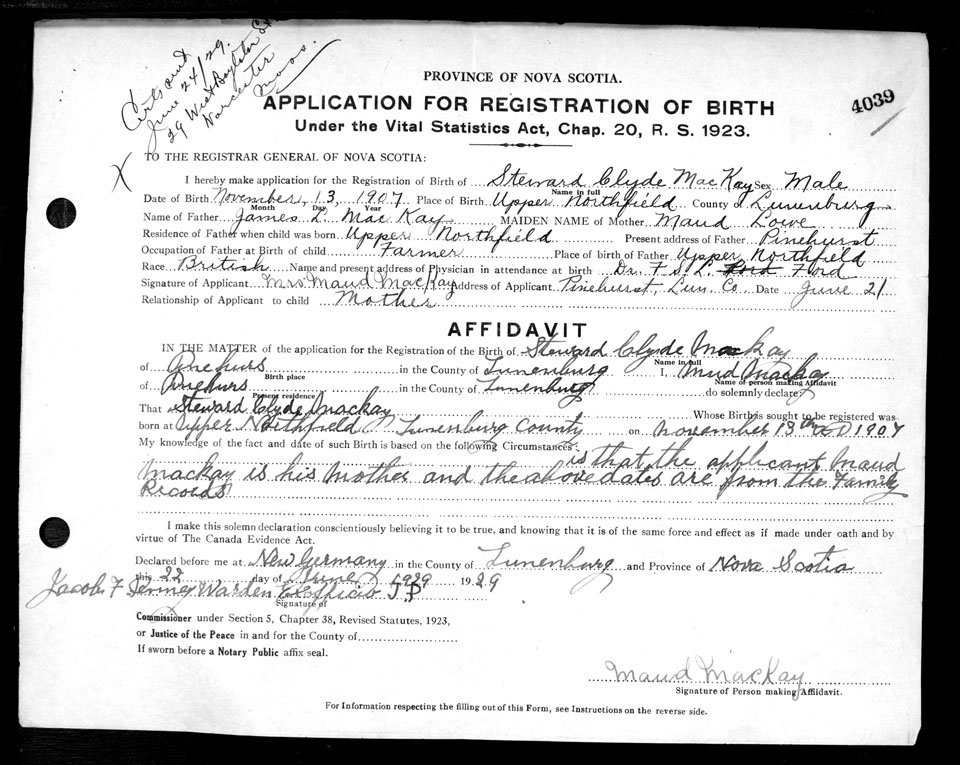 Certs sent
June 24/29.
29 West Boylston St
Worcester
Mass.
PROVINCE OF NOVA SCOTIA.
APPLICATION FOR REGISTRATION OF BIRTH
Under the Vital Statistics Act, Chap. 20, R. S. 1923.
4039
X
TO THE REGISTRAR GENERAL OF NOVA SCOTIA:
I hereby make application for the Registration of Birth of Steward Clyde MacKay Sex Male
Name in full
Date of Birth November, 13, 1907 Place of Birth Upper Northfield County of Lunenburg
Month Day Year
Name of Father James L. MacKay MAIDEN NAME of Mother Maud Lowe
Residence of Father when child was born Upper Northfield Present address of Father Pinehurst
Occupation of Father at Birth of child Farmer Place of birth of Father Upper Northfield
Race British Name and present address of Physician in attendance at birth Dr. F. S. L. Ford Ford
Signature of Applicant Mrs Maud MacKay Address of Applicant Pinehurst, Lun. Co. Date June 21
Relationship of Applicant to child Mother
AFFIDAVIT
IN THE MATTER of the application for the Registration of the Birth of Steward Clyde Mackay
Name in full
of Pinehurs in the County of Lunenburg I, Mud Mackay
Birth place Name of person making Affidavit
of Pinehurs in the County of Lunenburg do solemnly declare
Present residence
That Steward Clyde Mackay Whose Birth is sought to be registered was
born at Upper Northfield Lunenburg County on November 13th AD 1907
My knowledge of the fact and date of such Birth is based on the following Circumstances:
is that the applicant Maud
Mackay is his Mother and the above dates are from the Family
Records
I make this solemn declaration conscientiously believing it to be true, and knowing that it is of the same force and effect as if made under oath and by
virtue of The Canada Evidence Act.
Declared before me at New Germany in the County of Lunenburg and Province of Nova Scotia
this 22 day of June 1929 1929
Jacob F Warden Exofficio J P
Signature of
Commissioner under Section 5, Chapter 38, Revised Statutes, 1923,
or Justice of the Peace in and for the County of
If sworn before a Notary Public affix seal.
Maud MacKay
Signature of Person making Affidavit.
For Information respecting the filling out of this Form, see Instructions on the reverse side.